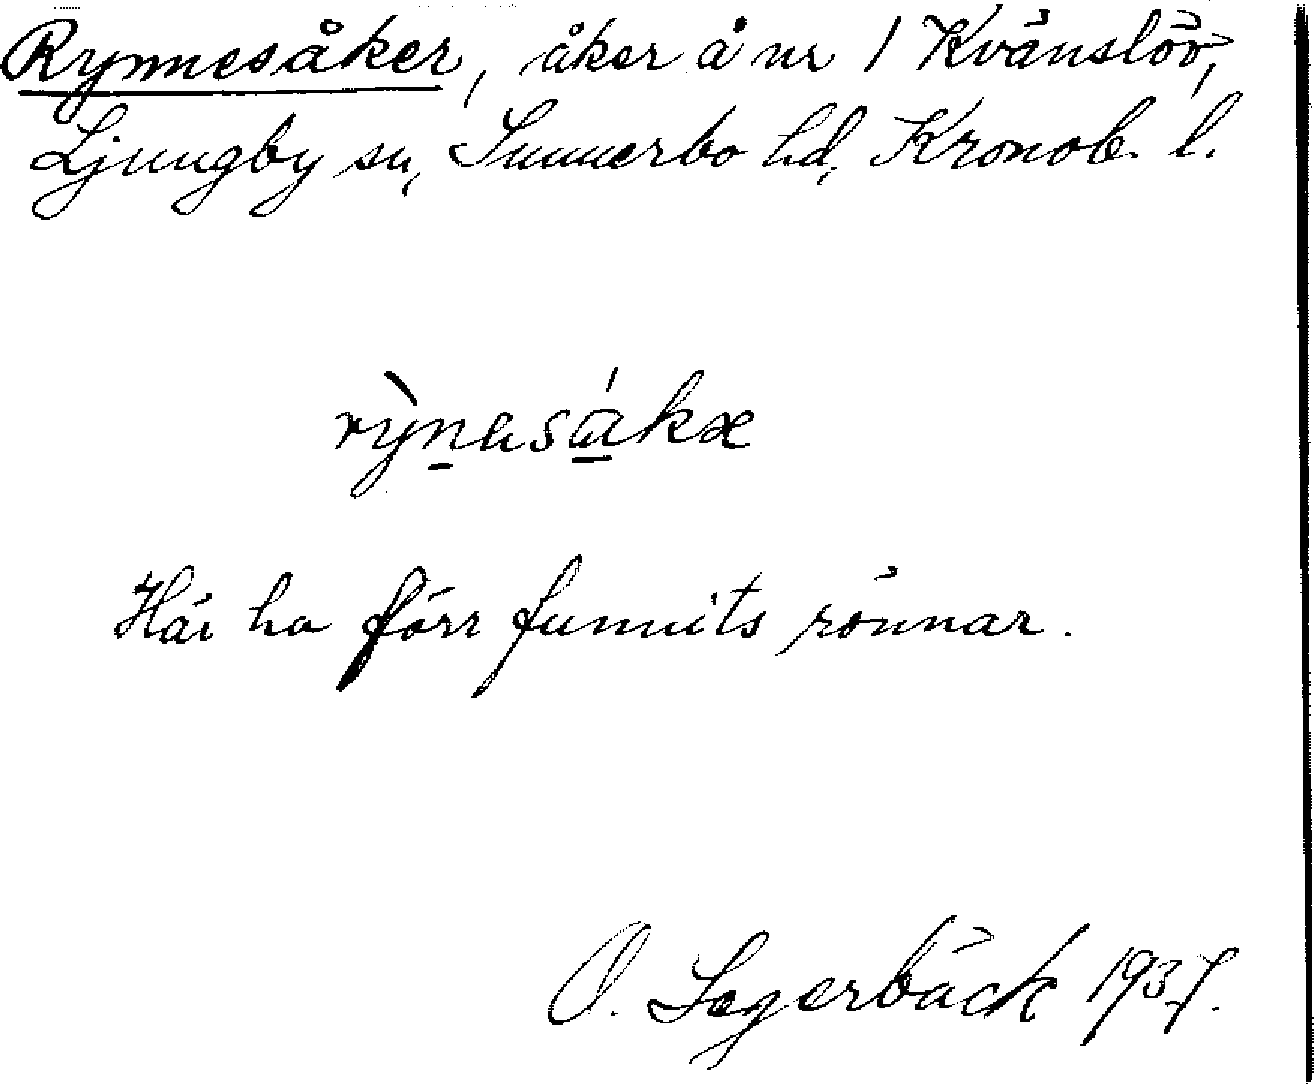 Rynnesåker, åker å nr 1 Kvänslöv,
Ljungby sn, Sunnerbo hd, Kronob. l.
rỳnasåkæ
Här ha förr funnits rönnar.
O. Segerbäck 1937.